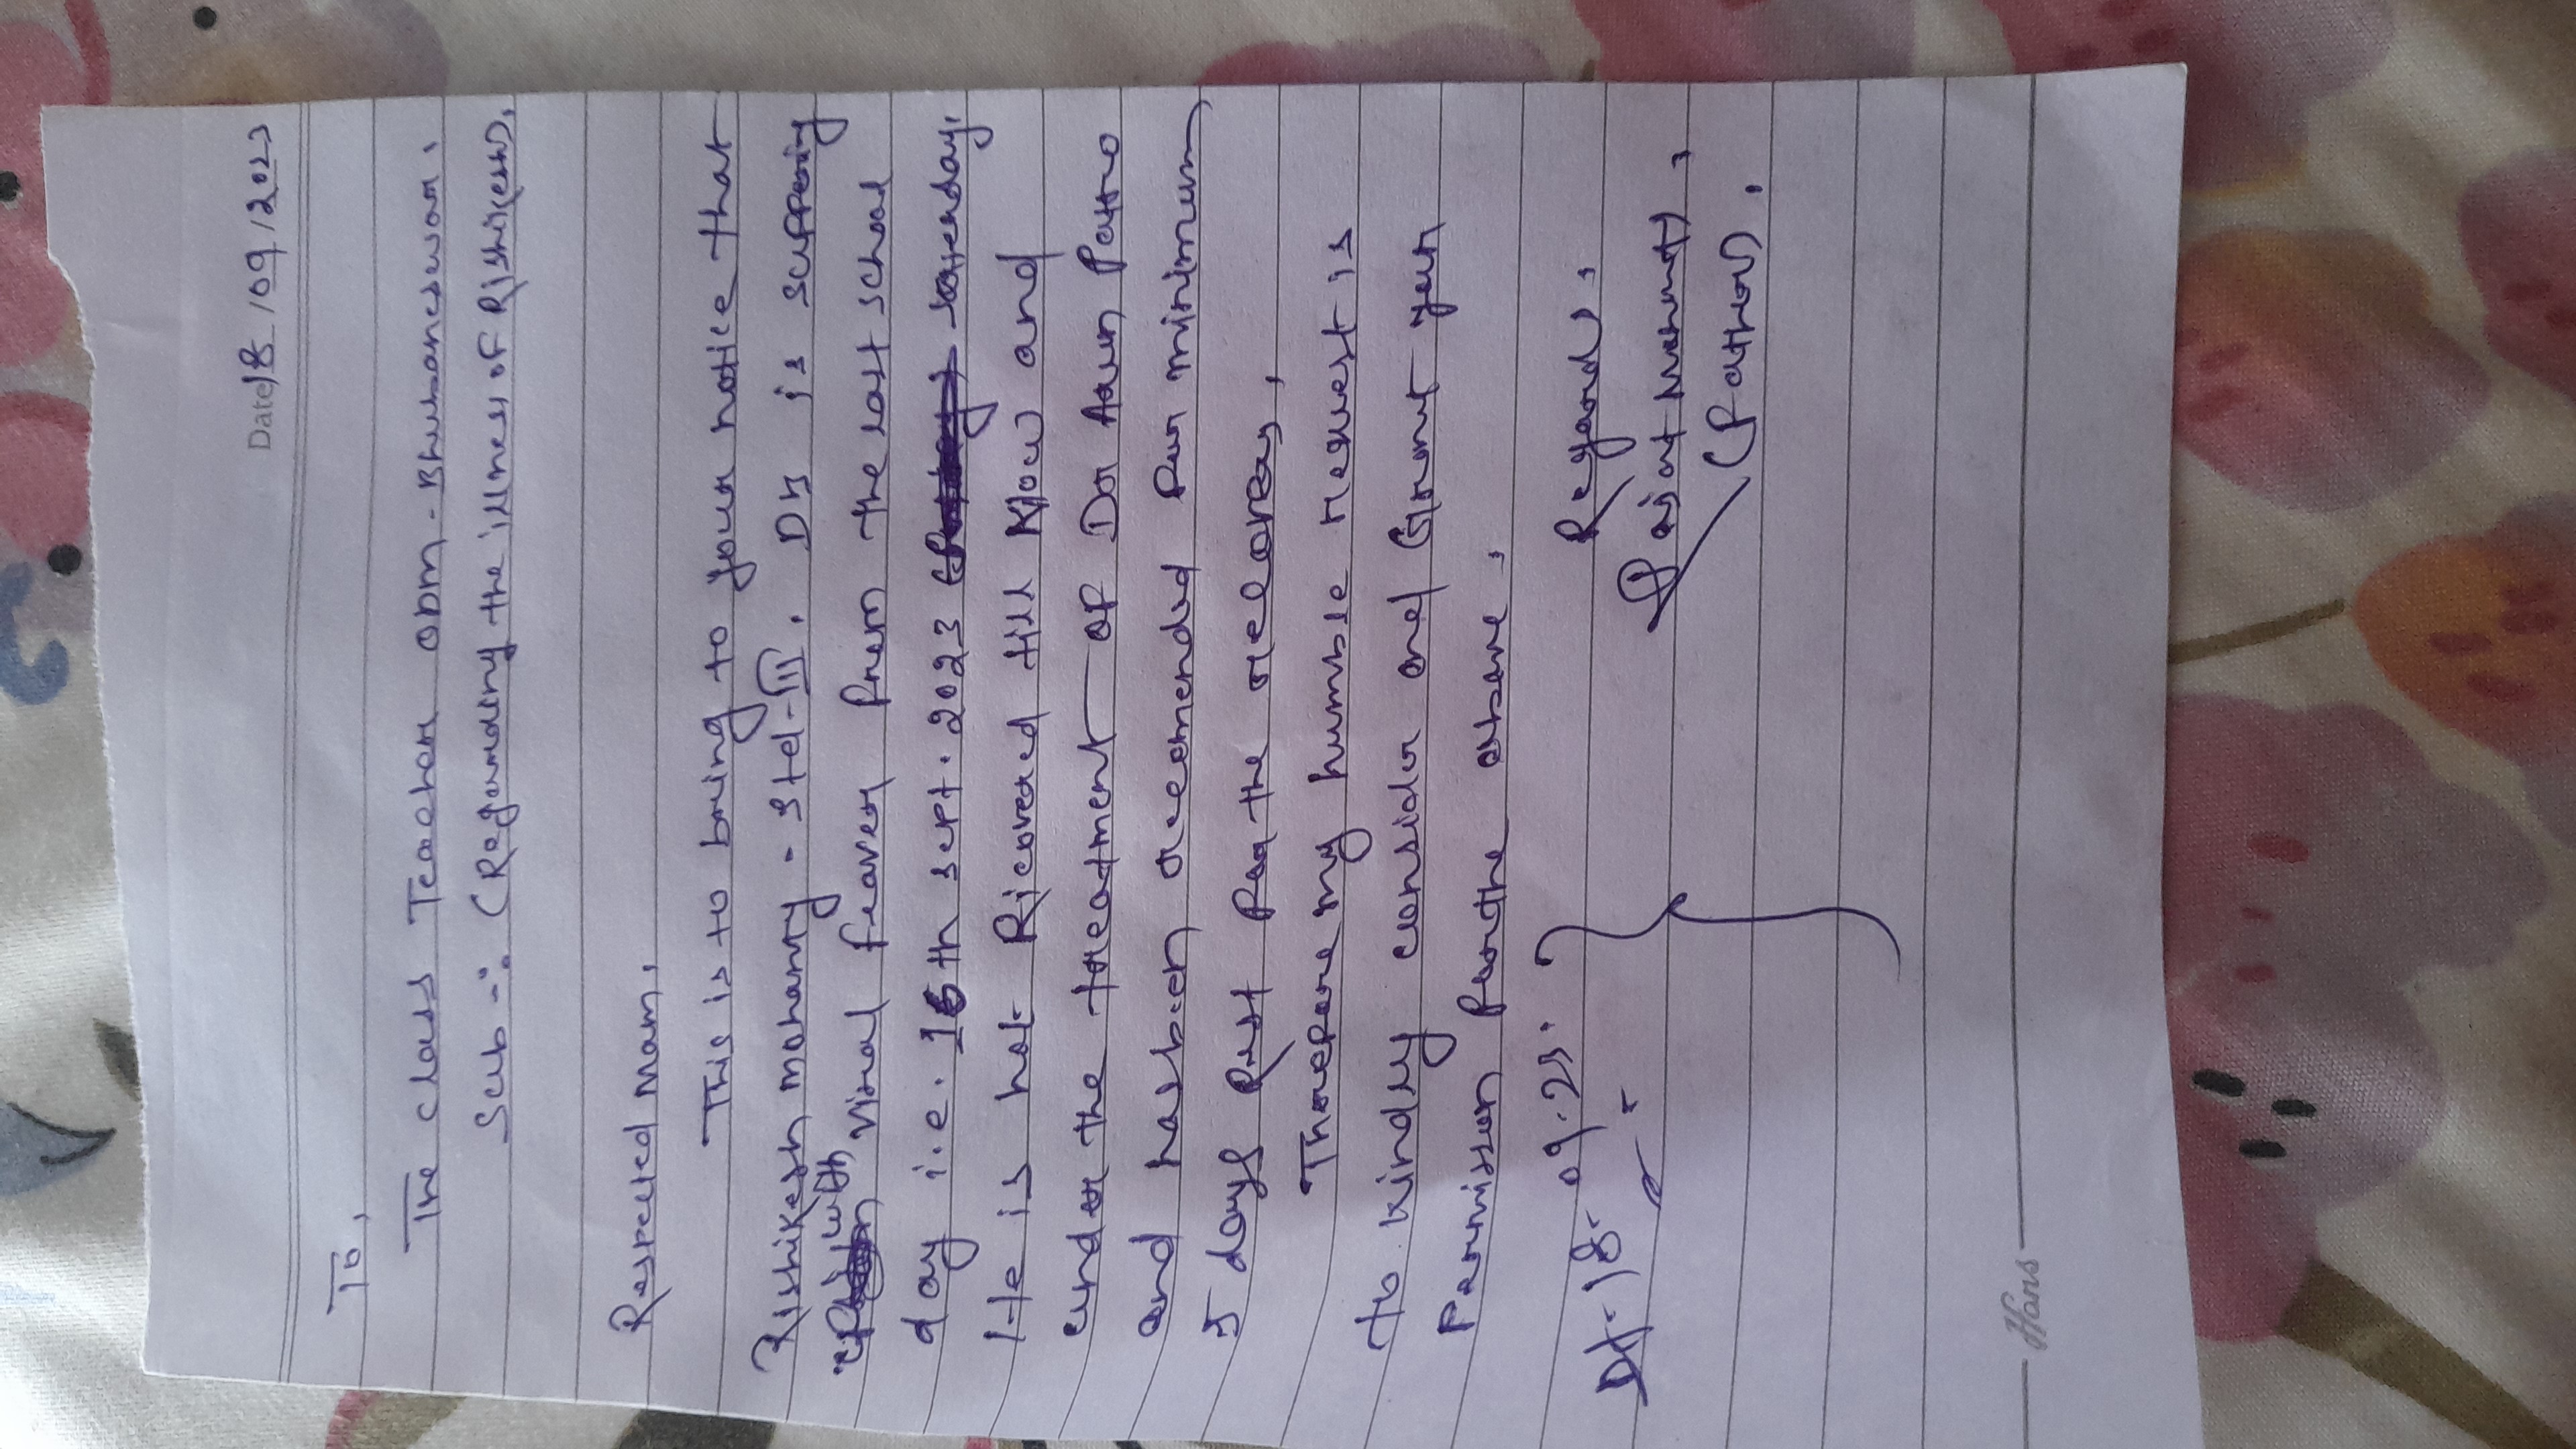 Date 18/09/2023
To,
The class Teacher ODM - Bhubaneswar.
Sub :- (Regarding the illness of Rishikesh.
Respected Mam,
This is to bring to your notice that
Rishikesh Mohanty - Std-III. D5 is suffering
with viral feaver from the last school
day i.e. 16th sept. 2023 Satterday.
He is not Ricovered till Now and
under the treatment of Dr Arun Patro
and has ben reecomended for minimum
5 days Rest for the recorey,
Therefore my humble request is
to kindly consider and Grant your
Permission for the absene,
Regards,
Rajat Mohanty,
(Father),
Dt- 18- 09. 23.
Hans